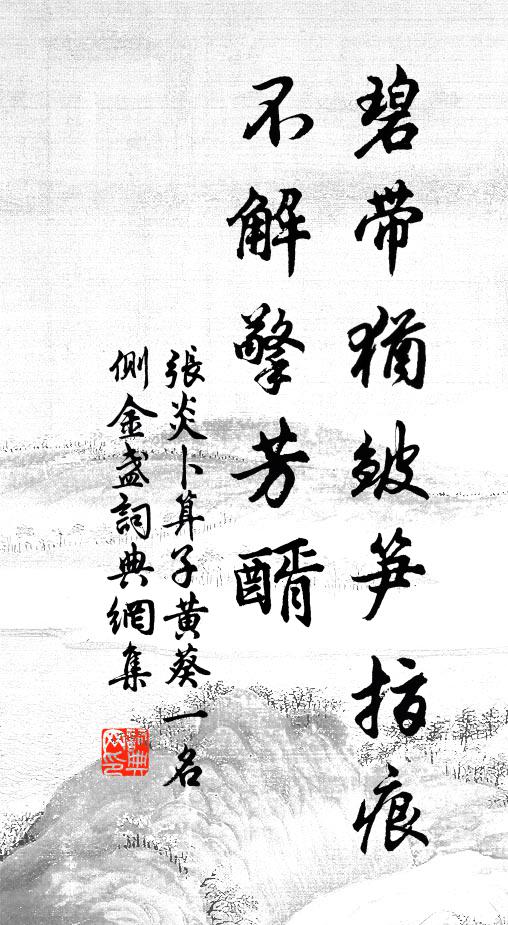 碧帶猶皴筍指痕
不解擎芳醑
張炎卜算子黃葵一名
側金盞詞典網集